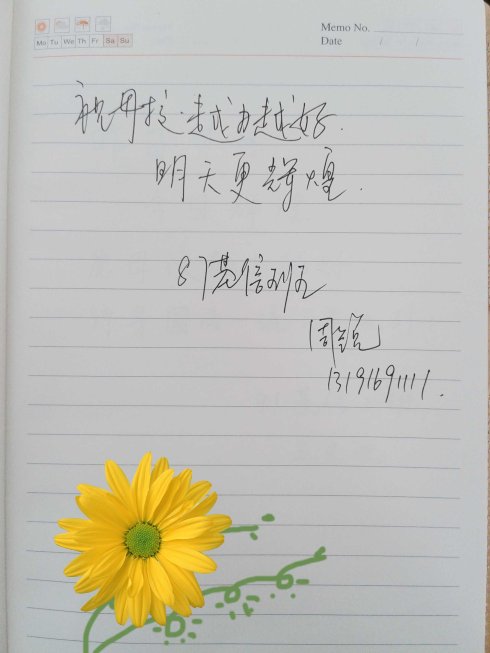 Memo No.
Mo Tu We Th Fr Sa Su
Date / /
祝母校越办越好.
明天更辉煌.
87基信班
周锐
13191691111.